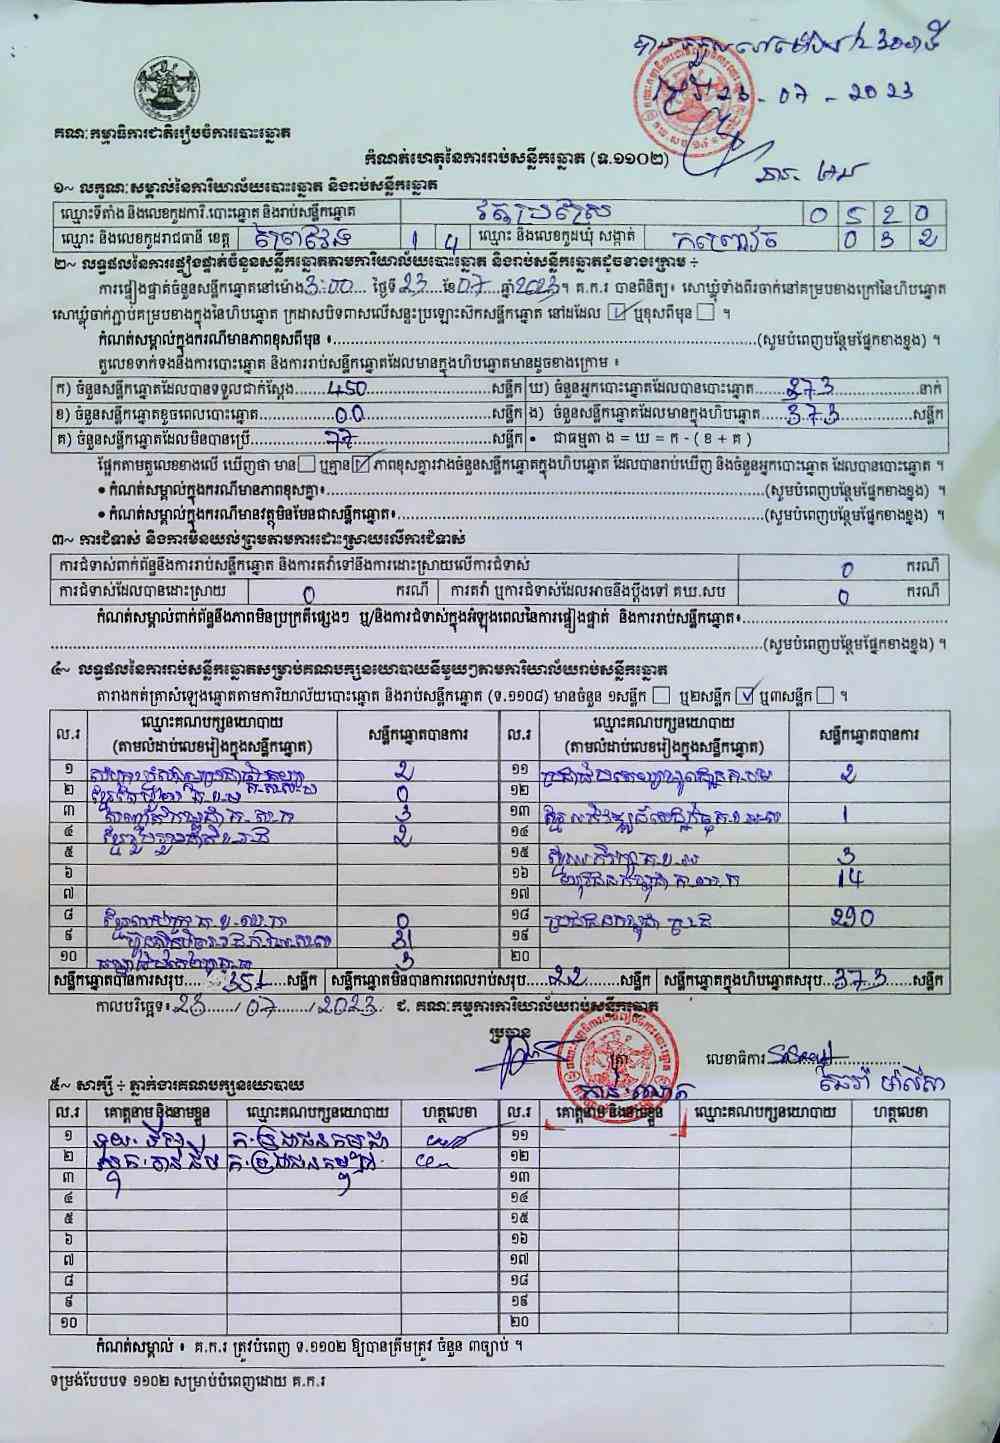 23 - 07 - 2023
គណៈកម្មាធិការជាតិរៀបចំការបោះឆ្នោត
កំណត់ហេតុនៃការរាប់សន្លឹកឆ្នោត (ទ.១១០២)
១~ លក្ខណៈសម្គាល់នៃការិយាល័យបោះឆ្នោត និងរាប់សន្លឹកឆ្នោត
ឈ្មោះទីតាំង និងលេខកូដការិ.បោះឆ្នោត និងរាប់សន្លឹកឆ្នោត 0 5 2 0
ឈ្មោះ និងលេខកូដរាជធានី ខេត្ត ព្រៃវែង 1 4 ឈ្មោះ និងលេខកូដឃុំ សង្កាត់ កញ្ជ្រៀច 0 3 2
២~ លទ្ធផលនៃការផ្ទៀងផ្ទាត់ចំនួនសន្លឹកឆ្នោតតាមការិយាល័យបោះឆ្នោត និងរាប់សន្លឹកឆ្នោតដូចខាងក្រោម ÷
ការផ្ទៀងផ្ទាត់ចំនួនសន្លឹកឆ្នោតនៅម៉ោង 3:00 ថ្ងៃទី 23 ខែ 07 ឆ្នាំ 2023 ។ គ.ក.រ បានពិនិត្យ៖ សោឃ្លុំទាំងពីរចាក់នៅគម្របខាងក្រៅនៃហិបឆ្នោត
សោឃ្លុំចាក់ភ្ជាប់គម្របខាងក្នុងនៃហិបឆ្នោត ក្រដាសបិទពាសលើសន្ទះប្រឡោះស៊កសន្លឹកឆ្នោត នៅដដែល ☑ ឬខុសពីមុន ☐ ។
កំណត់សម្គាល់ក្នុងករណីមានភាពខុសពីមុន ៖ (សូមបំពេញបន្ថែមផ្នែកខាងខ្នង) ។
តួលេខទាក់ទងនឹងការបោះឆ្នោត និងការរាប់សន្លឹកឆ្នោតដែលមានក្នុងហិបឆ្នោតមានដូចខាងក្រោម ៖
ក) ចំនួនសន្លឹកឆ្នោតដែលបានទទួលជាក់ស្តែង 450 សន្លឹក ឃ) ចំនួនអ្នកបោះឆ្នោតដែលបានបោះឆ្នោត 373 នាក់
ខ) ចំនួនសន្លឹកឆ្នោតខូចពេលបោះឆ្នោត 00 សន្លឹក ង) ចំនួនសន្លឹកឆ្នោតដែលមានក្នុងហិបឆ្នោត 373 សន្លឹក
គ) ចំនួនសន្លឹកឆ្នោតដែលមិនបានប្រើ 77 សន្លឹក • ជាធម្មតា ង = ឃ = ក - ( ខ + គ )
ផ្អែកតាមតួលេខខាងលើ ឃើញថា មាន ☐ ឬគ្មាន ☑ ភាពខុសគ្នារវាងចំនួនសន្លឹកឆ្នោតក្នុងហិបឆ្នោត ដែលបានរាប់ឃើញ និងចំនួនអ្នកបោះឆ្នោត ដែលបានបោះឆ្នោត ។
• កំណត់សម្គាល់ក្នុងករណីមានភាពខុសគ្នា៖ (សូមបំពេញបន្ថែមផ្នែកខាងខ្នង) ។
• កំណត់សម្គាល់ក្នុងករណីមានវត្ថុមិនមែនជាសន្លឹកឆ្នោត៖ (សូមបំពេញបន្ថែមផ្នែកខាងខ្នង) ។
៣~ ការជំទាស់ និងការមិនយល់ព្រមតាមការដោះស្រាយលើការជំទាស់
ការជំទាស់ពាក់ព័ន្ធនឹងការរាប់សន្លឹកឆ្នោត និងការតវ៉ាទៅនឹងការដោះស្រាយលើការជំទាស់ 0 ករណី
ការជំទាស់ដែលបានដោះស្រាយ 0 ករណី ការតវ៉ា ឬការជំទាស់ដែលអាចនឹងប្តឹងទៅ គឃ.សប 0 ករណី
កំណត់សម្គាល់ពាក់ព័ន្ធនឹងភាពមិនប្រក្រតីផ្សេងៗ ឬ/និងការជំទាស់ក្នុងអំឡុងពេលនៃការផ្ទៀងផ្ទាត់ និងការរាប់សន្លឹកឆ្នោត៖
(សូមបំពេញបន្ថែមផ្នែកខាងខ្នង) ។
៤~ លទ្ធផលនៃការរាប់សន្លឹកឆ្នោតសម្រាប់គណបក្សនយោបាយនីមួយៗតាមការិយាល័យរាប់សន្លឹកឆ្នោត
តារាងកត់ត្រាសំឡេងឆ្នោតតាមការិយាល័យបោះឆ្នោត និងរាប់សន្លឹកឆ្នោត (ទ.១១០៨) មានចំនួន ១សន្លឹក ☐ ឬ២សន្លឹក ☑ ឬ៣សន្លឹក ☐ ។
ល.រ ឈ្មោះគណបក្សនយោបាយ (តាមលំដាប់លេខរៀងក្នុងសន្លឹកឆ្នោត) សន្លឹកឆ្នោតបានការ ល.រ ឈ្មោះគណបក្សនយោបាយ (តាមលំដាប់លេខរៀងក្នុងសន្លឹកឆ្នោត) សន្លឹកឆ្នោតបានការ
១ 2 ១១ 2
២ 0 ១២
៣ 3 ១៣ 1
៤ 2 ១៤
៥ ១៥ 3
៦ ១៦ 14
៧ ១៧
៨ 0 ១៨ 290
៩ 31 ១៩
១០ 3 ២០
សន្លឹកឆ្នោតបានការសរុប 351 សន្លឹក សន្លឹកឆ្នោតមិនបានការពេលរាប់សរុប 22 សន្លឹក សន្លឹកឆ្នោតក្នុងហិបឆ្នោតសរុប 373 សន្លឹក
កាលបរិច្ឆេទ៖ 23 / 07 / 2023 ជ. គណៈកម្មការការិយាល័យរាប់សន្លឹកឆ្នោត
ប្រធាន
ត្រា លេខាធិការ
៥~ សាក្សី ÷ ភ្នាក់ងារគណបក្សនយោបាយ
ល.រ គោត្តនាម និងនាមខ្លួន ឈ្មោះគណបក្សនយោបាយ ហត្ថលេខា ល.រ គោត្តនាម និងនាមខ្លួន ឈ្មោះគណបក្សនយោបាយ ហត្ថលេខា
១ គ.ប្រជាជនកម្ពុជា ១១
២ គ.ប្រជាជនកម្ពុជា ១២
៣ ១៣
៤ ១៤
៥ ១៥
៦ ១៦
៧ ១៧
៨ ១៨
៩ ១៩
១០ ២០
កំណត់សម្គាល់ ៖ គ.ក.រ ត្រូវបំពេញ ទ.១១០២ ឱ្យបានត្រឹមត្រូវ ចំនួន ៣ច្បាប់ ។
ទម្រង់បែបបទ ១១០២ សម្រាប់បំពេញដោយ គ.ក.រ